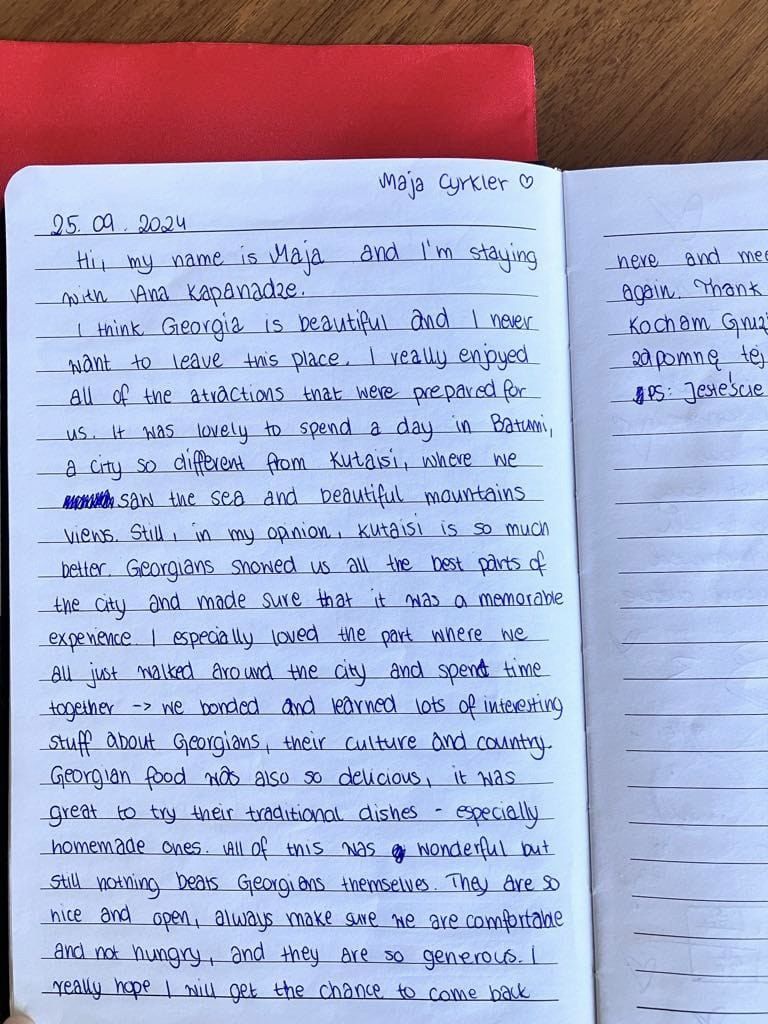 Maja Cyrkler ♡
25. 09. 2024
Hi, my name is Maja and I'm staying
with Ana Kapanadze.
I think Georgia is beautiful and I never
want to leave this place. I really enjoyed
all of the atractions that were prepared for
us. It was lovely to spend a day in Batumi,
a city so different from Kutaisi, where we
saw the sea and beautiful mountains
views. Still, in my opinion, Kutaisi is so much
better. Georgians showed us all the best parts of
the city and made sure that it was a memorable
experience. I especially loved the part where we
all just walked around the city and spent time
together -> we bonded and learned lots of interesting
stuff about Georgians, their culture and country.
Georgian food was also so delicious, it was
great to try their traditional dishes - especially
homemade ones. All of this was wonderful but
still nothing beats Georgians themselves. They are so
nice and open, always make sure we are comfortable
and not hungry, and they are so generous. I
really hope I will get the chance to come back
here and mee
again. Thank
Kocham Gruz
zapomnę tej
PS: Jesteście